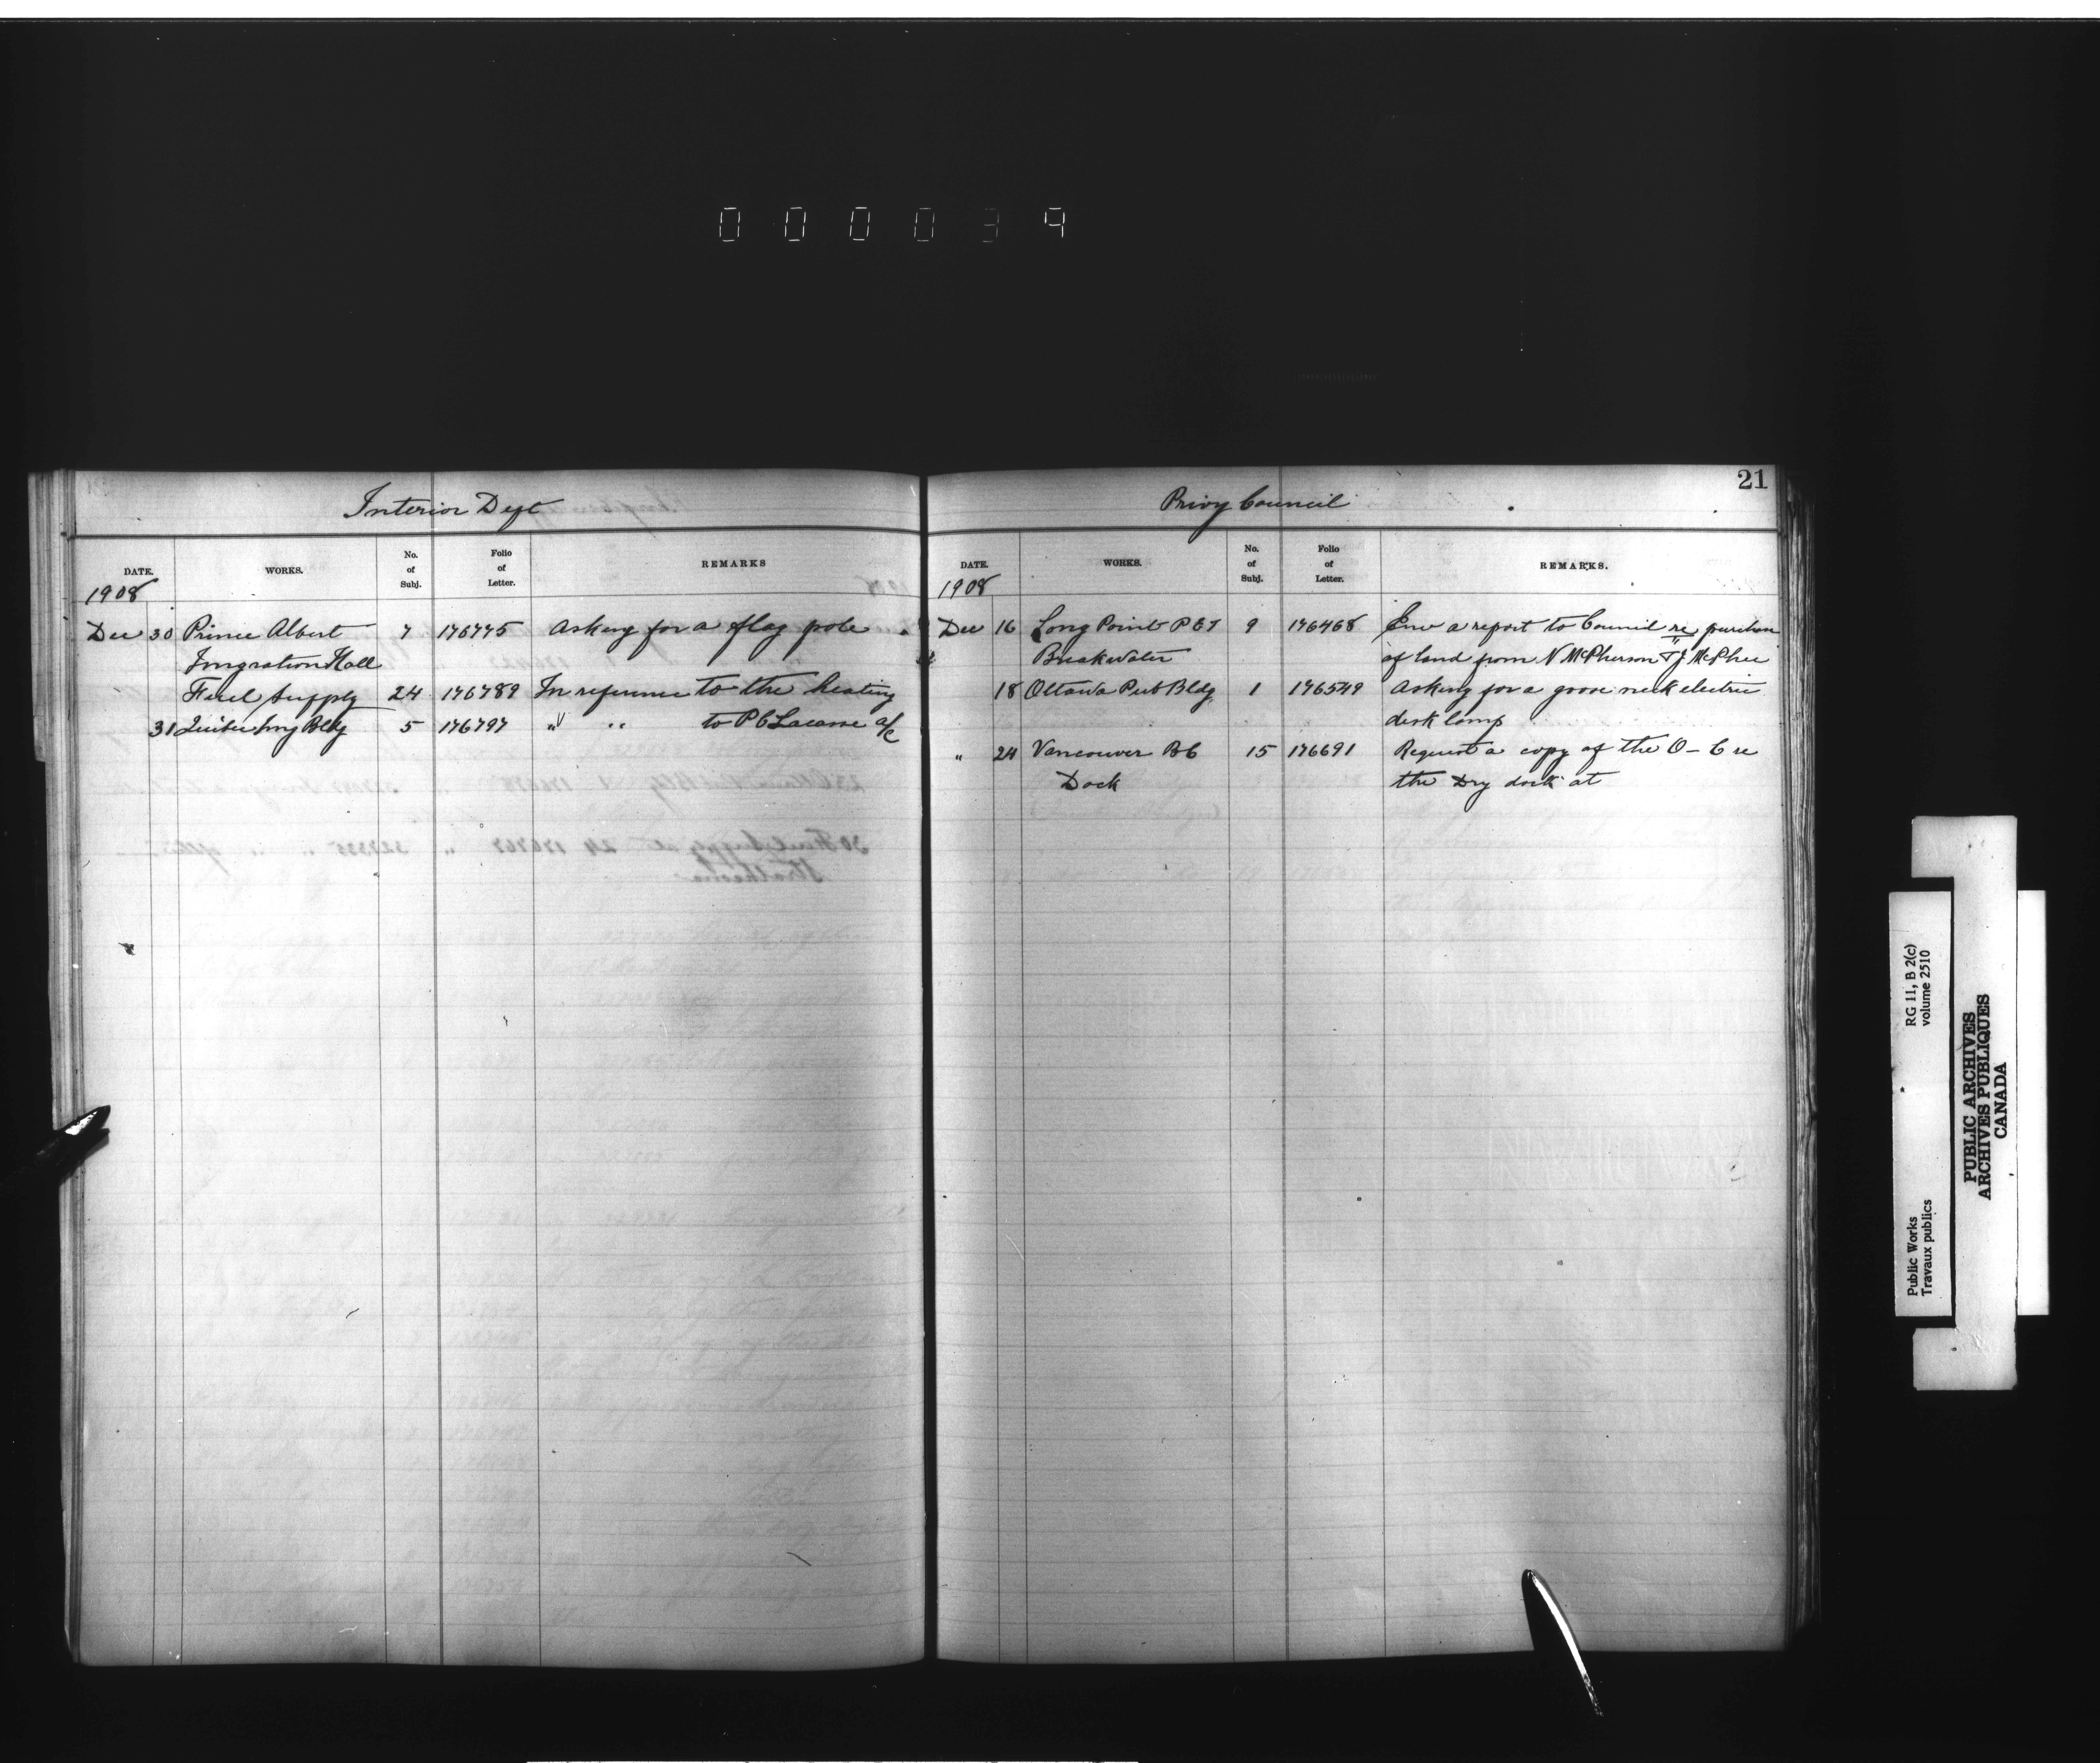 000039
Interior Dept
DATE. WORKS. No. of Subj. Folio of Letter. REMARKS
1908
Dec 30 Prince Albert 7 176775 Asking for a flag pole
Imgration Hall
Fuel Supply 24 176789 In reference to the heating
31 Quebec Img Bldg 5 176797 " " to P E Lacasse a/c
21
Privy Council
DATE. WORKS. No. of Subj. Folio of Letter. REMARKS.
1908
Dec 16 Long Point P E I 9 176468 Enc a report to Council re purchase
Breakwater of land from N McPherson & J McPhee
18 Ottawa Pub Bldg 1 176549 Asking for a goose neck electric
desk lamp
" 24 Vancouver B C 15 176691 Request a copy of the O-C re
Dock the Dry dock at
RG 11, B 2(c)
volume 2510
Public Works
Travaux publics
PUBLIC ARCHIVES
ARCHIVES PUBLIQUES
CANADA